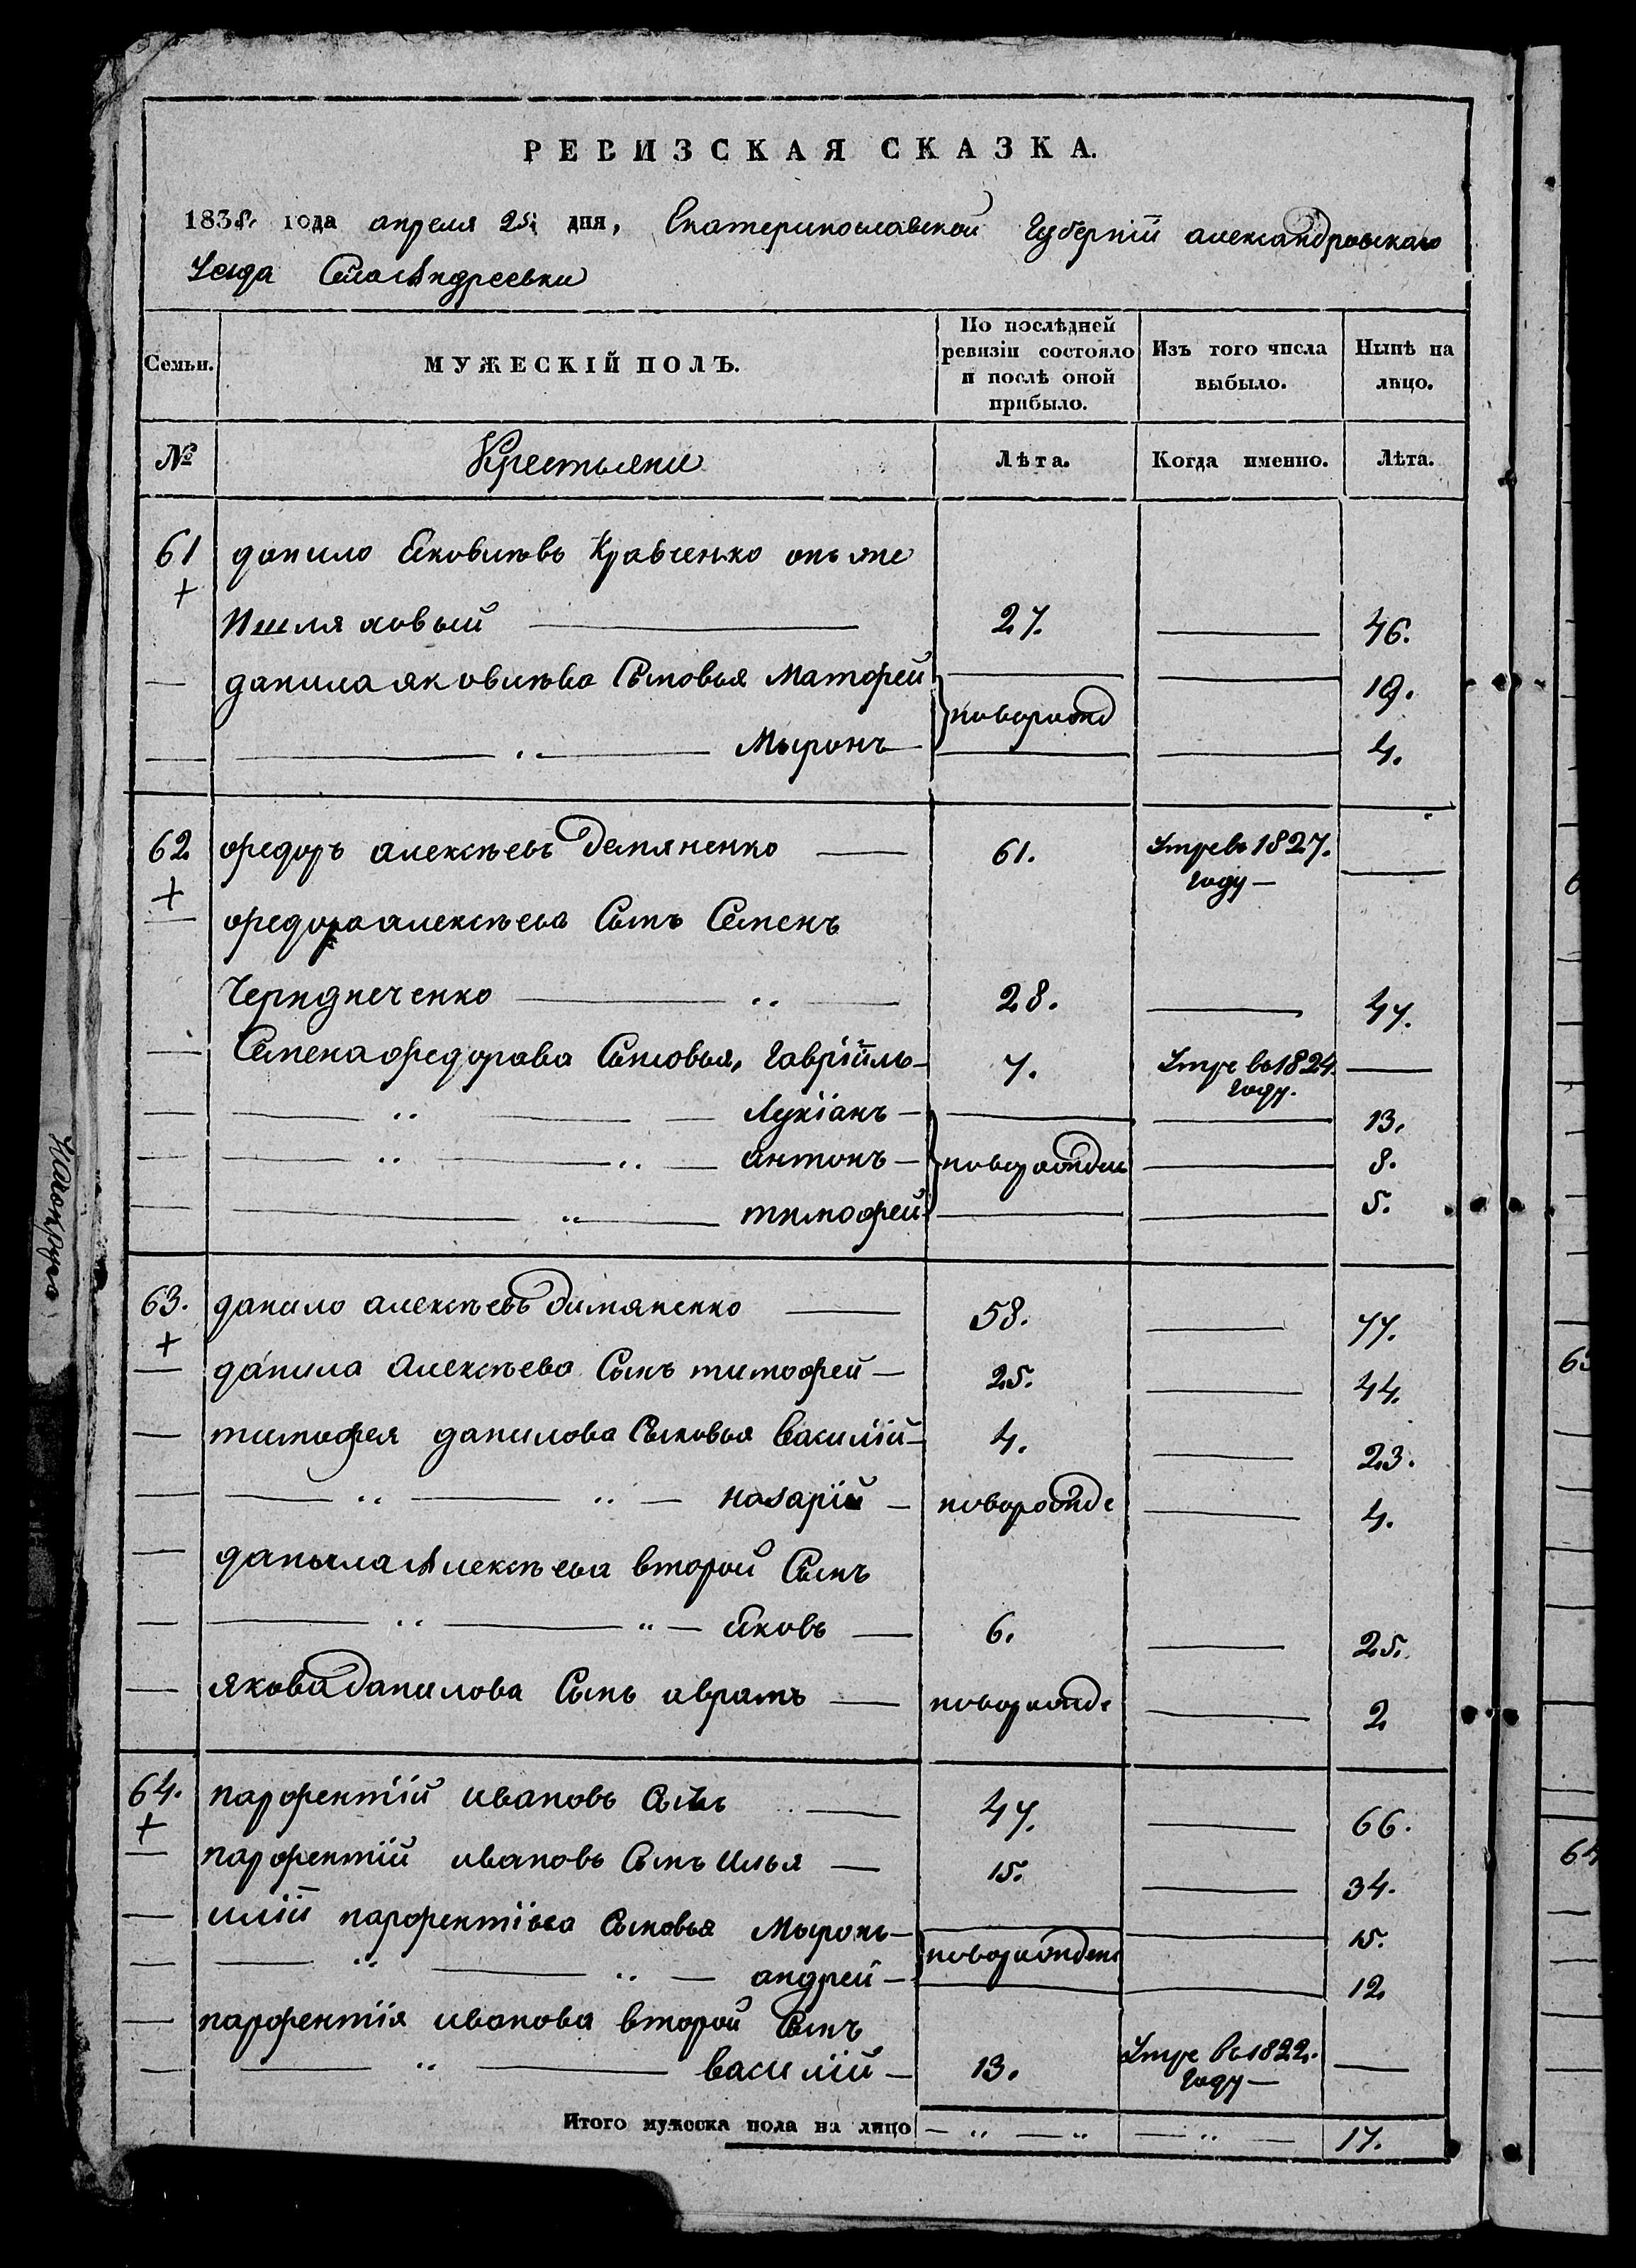 РЕВИЗСКАЯ СКАЗКА.
1835. года апреля 25. дня, Екатеринославской Губернїй александровскаго
Уезда Села Андреевки
Семьи.
МУЖЕСКІЙ ПОЛЪ.
По послѣдней ревизіи состояло и послѣ оной прибыло.
Изъ того числа выбыло.
Нынѣ на лицо.
№
Крестьяне
Лѣта.
Когда именно.
Лѣта.
61 данило Яковлѣвъ Кравченко онъ же
+
27. 46.
— данила яковлѣва Сыновья Матфей 19.
новорожд
— Мыронъ 4.
62 федоръ алексѣевъ Демяненко — 61. Умре въ 1827. году —
+
— федора алексѣева Сынъ Семенъ
Чередниченко 28. 47.
— Семена федорава Сыновья, Гаврїйлъ 7. Умре в 1824. году.
— Лукїанъ — 13.
— антонъ — новорожден 8.
— тимофей 5.
63. данило алексѣевъ Димяненко — 58. 77.
+
— данила Алексѣева Сынъ тимофей — 25. 44.
— тимофея данилова Сыновья Василїй 4. 23.
— назарїй — новорожде 4.
— даныла Алексѣева второй Сынъ
— Яковъ — 6. 25.
— якова данилова Сынъ аврамъ — новорожде 2
64. парфентїй ивановъ 47. 66.
+
— парфентїй ивановъ Сынъ Илья — 15. 34.
— илїй парфентїева Сыновья Мыронъ 15.
новорожден
— андрей — 12
— парфентїя иванова второй Сынъ
— василїй — 13. Умре в 1822. году —
Итого мужеска пола на лицо 17.